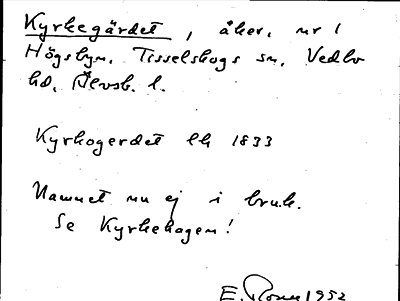 Kyrkegärdet, åker, nr 1
Högsbyn. Tisselskogs sn. Vedbo
hd. Älvsb. l.
Kyrkogerdet lh 1833
Namnet nu ej i bruk.
Se Kyrkehagen!
E. 1952